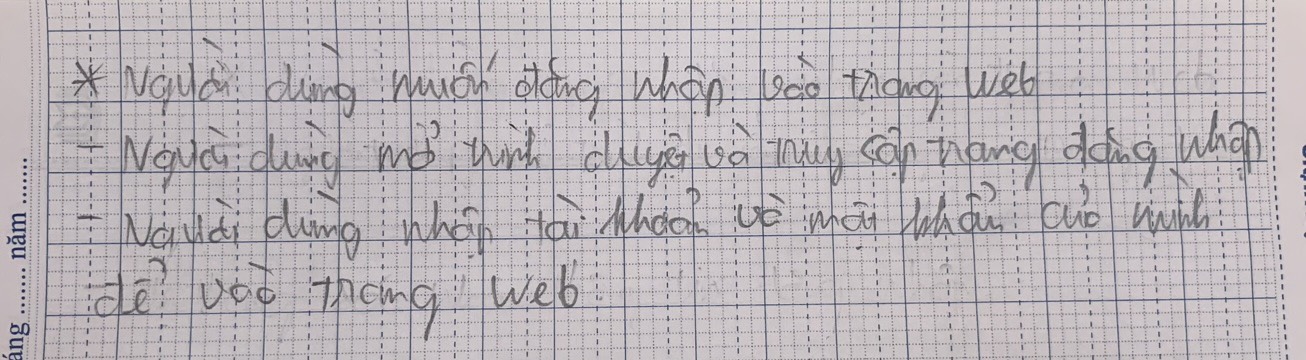 * Người dùng muốn đăng nhập vào trang web
- Người dùng mở trình duyệt và truy cập trang đăng nhập
- Người dùng nhập tài khoản và mật khẩu của mình
để vào trang web
áng ....... năm ......